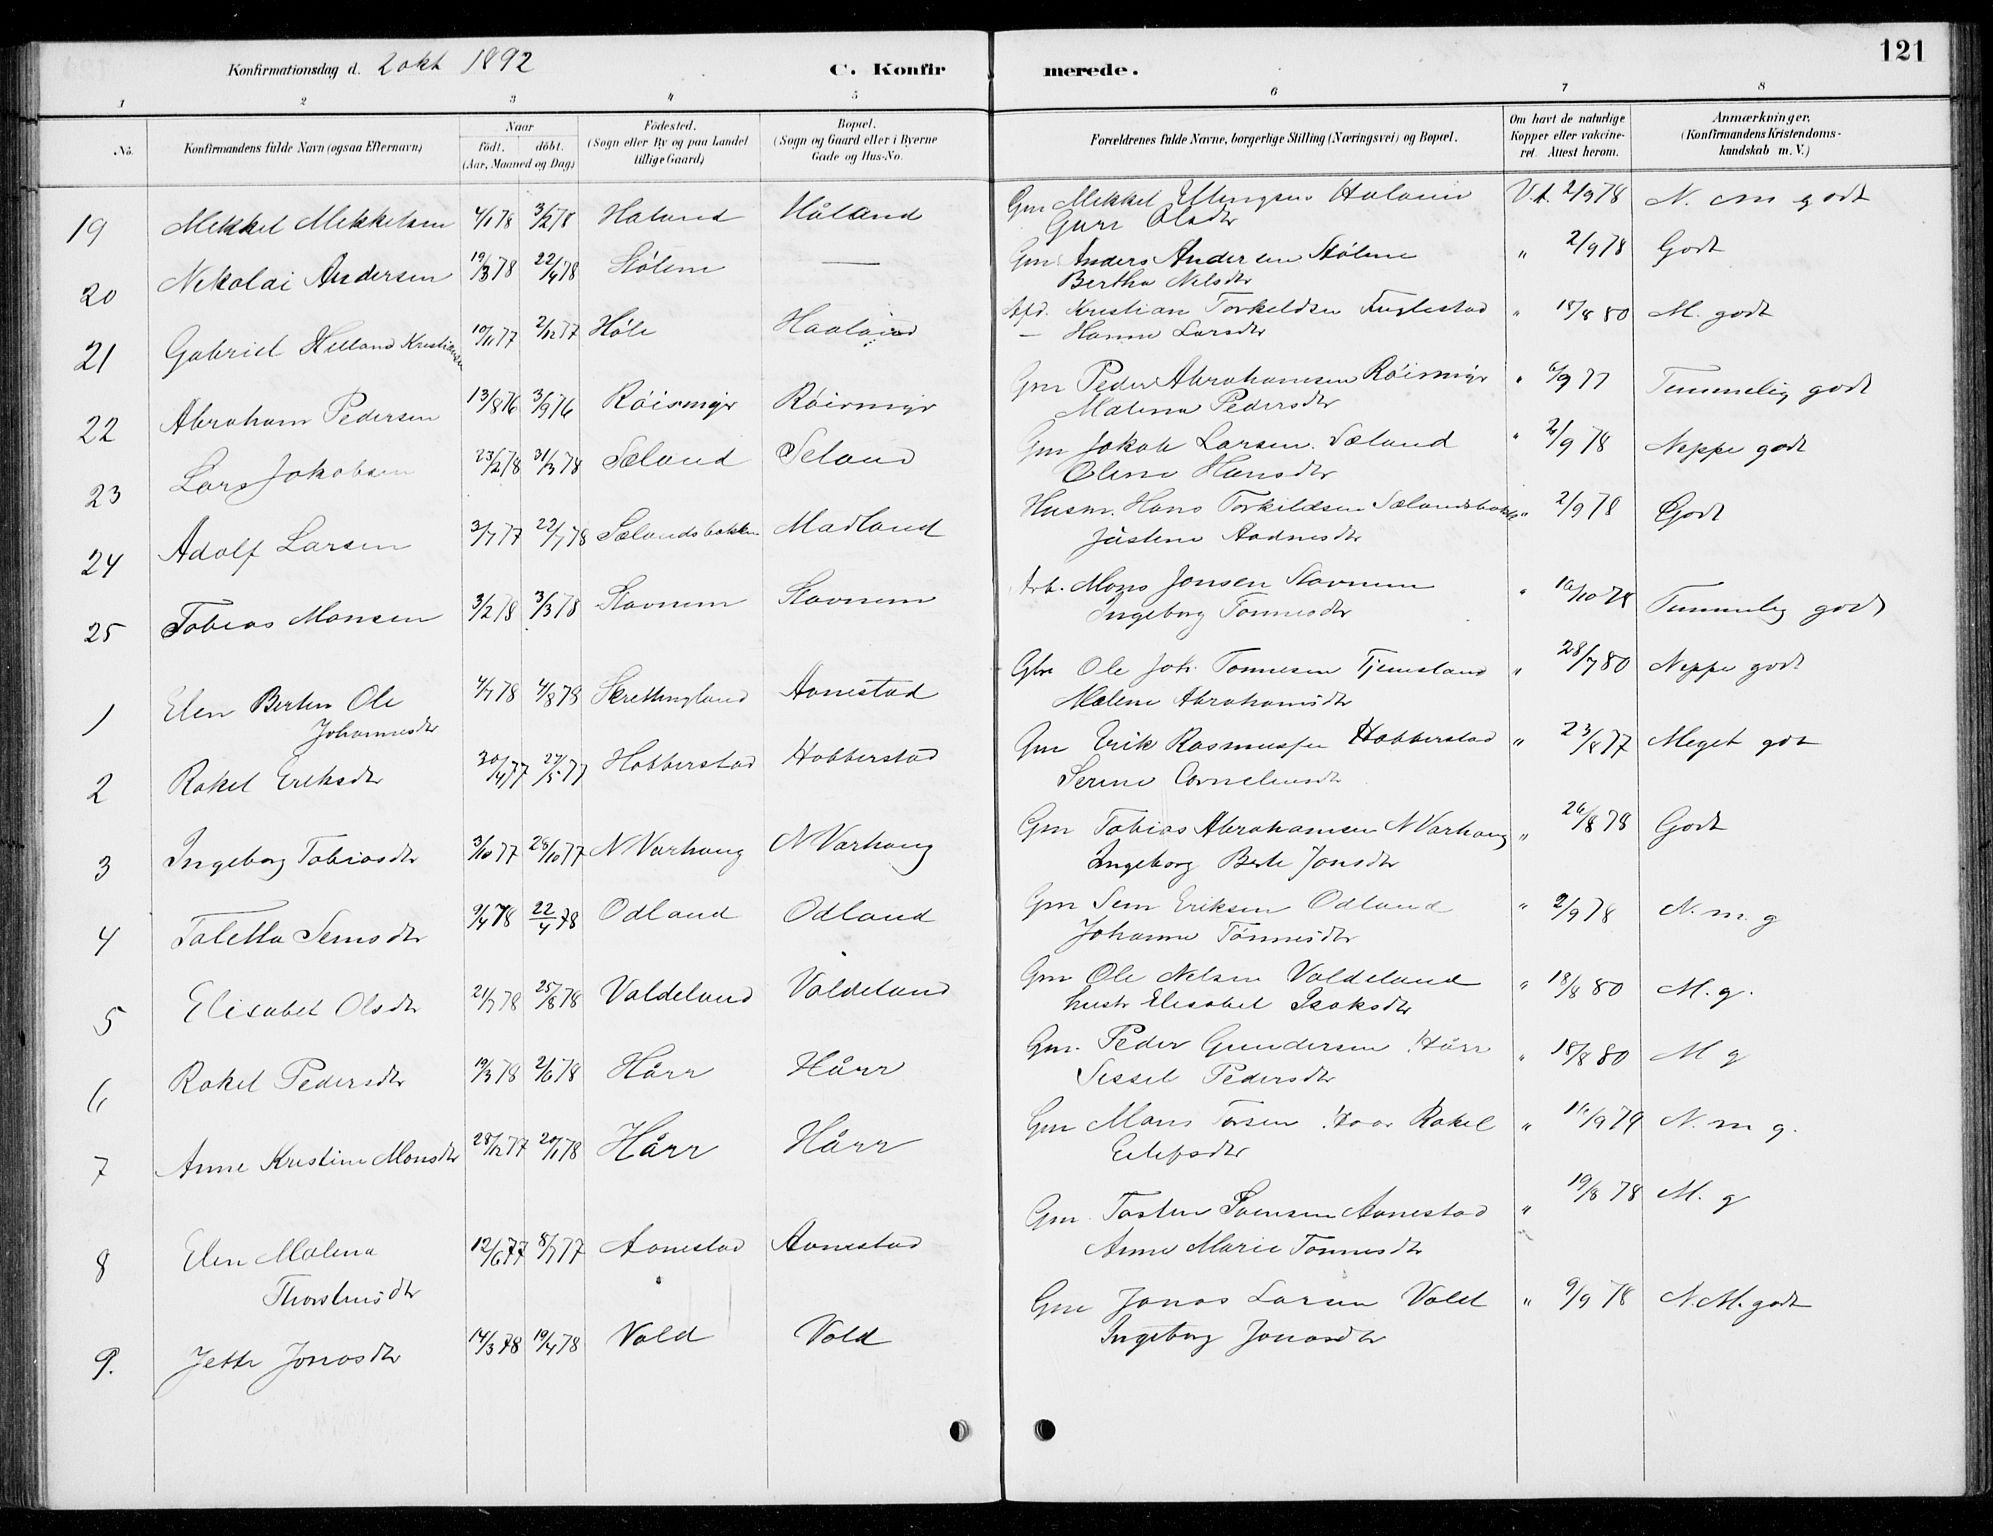 121
Konfirmationsdag d. 2 okt 1892 C. Konfirmerede.
1 2 3 4 5 6 7 8
No. Konfirmandens fulde Navn (ogsaa Efternavn) Naar født. døbt. (Aar, Maaned og Dag) Fødested. (Sogn eller By og paa Landet tillige Gaard) Bopæl. (Sogn og Gaard eller i Byerne Gade og Hus-No. Forældrenes fulde Navne, borgerlige Stilling (Næringsvei) og Bopæl. Om havt de naturlige Kopper eller vakcineret. Attest herom. Anmærkninger. (Konfirmandens Kristendomskundskab m. V.)
19 Mikkel Mikkelsen 4/1 78 3/2 78 Haland Håland Gm Mikkel Haland V.A. 2/9 78 N. M godt
Guri Olsdtr
20 Nikolai Andersen 19/3 78 22/4 78 Stølene — Gm Anders Andersen Stølene " 2/9 78 Godt
Bertha Nilsdtr
21 Gabriel Helland Kristiansen 10/11 77 2/12 77 Høle Haaland Afd. Kristian Torkeldsen Fuglestad " 18/8 80 M. godt
— Hanne Larsdtr
22 Abraham Pedersen 13/8 76 3/9 76 Røismyr Røismyr Gm Peder Abrahamsen Røismyr " 6/9 77 Temmelig godt
Malena Pedersdtr
23 Lars Jakobsen 23/2 78 31/3 78 Sæland Seland Gm Jakob Larsen Sæland " 2/9 78 Neppe godt
Olene Hansdtr
24 Adolf Larsen 3/7 77 22/7 78 Sælandsbakken Madland Husm. Hans Torkildsen Sælandsbak " 2/9 78 Godt
Justine Aadnesdtr
25 Tobias Monsen 3/2 78 3/3 78 Stavnem Stavnem Arb. Mons Jonsen Stavnem " 10/10 78 Temmelig godt
Ingeborg Tønnesdtr
1 Elen Bertin Ole 4/7 78 4/8 78 Skrettingland Aanestad Gbr Ole Joh. Tønnesen Tjemsland " 28/7 80 Neppe godt
Johannesdtr Malene Abrahamsdtr
2 Rakel Eriksdtr 30/4 77 27/5 77 Hobberstad Hobberstad Gm Erik Rasmussen Hobberstad " 23/8 77 Meget godt
Serine Corneliusdtr
3 Ingeborg Tobiasdtr 3/10 77 28/10 77 N Varhaug N Varhaug Gm Tobias Abrahamsen N Varhaug " 26/8 78 Godt
Ingeborg Berte Jonsdtr
4 Taletta Semsdtr 9/4 78 22/4 78 Odland Odland Gm Sem Eriksen Odland " 2/9 78 N. m. g
Johanne Tønnesdtr
5 Elisabet Olsdtr 21/7 78 25/8 78 Valdeland Valdeland Gm Ole Nelsen Valdeland " 18/8 80 M. g.
hustr Elisabet Isaksdtr
6 Rakel Pedersdtr 19/3 78 2/6 78 Hårr Hårr Gm. Peder Gundersen Hårr " 18/8 80 M g
Sissel Pedersdtr
7 Anne Kristine Monsdtr 28/12 77 20/1 78 Hårr Hårr Gm Mons Torsen Haar Rakel " 16/9 79 N. m g.
Eilefsdtr
8 Elen Malena 12/6 77 8/7 77 Aanestad Aanestad Gm Tosten Svensen Aanestad " 19/8 78 M. g
Thorstensdtr Anne Marie Tønnesdtr
9. Jette Jonasdtr 14/3 78 19/4 78 Vold Vold Gm Jonas Larsen Vold " 9/9 78 N. M. godt
Ingeborg Jonasdtr